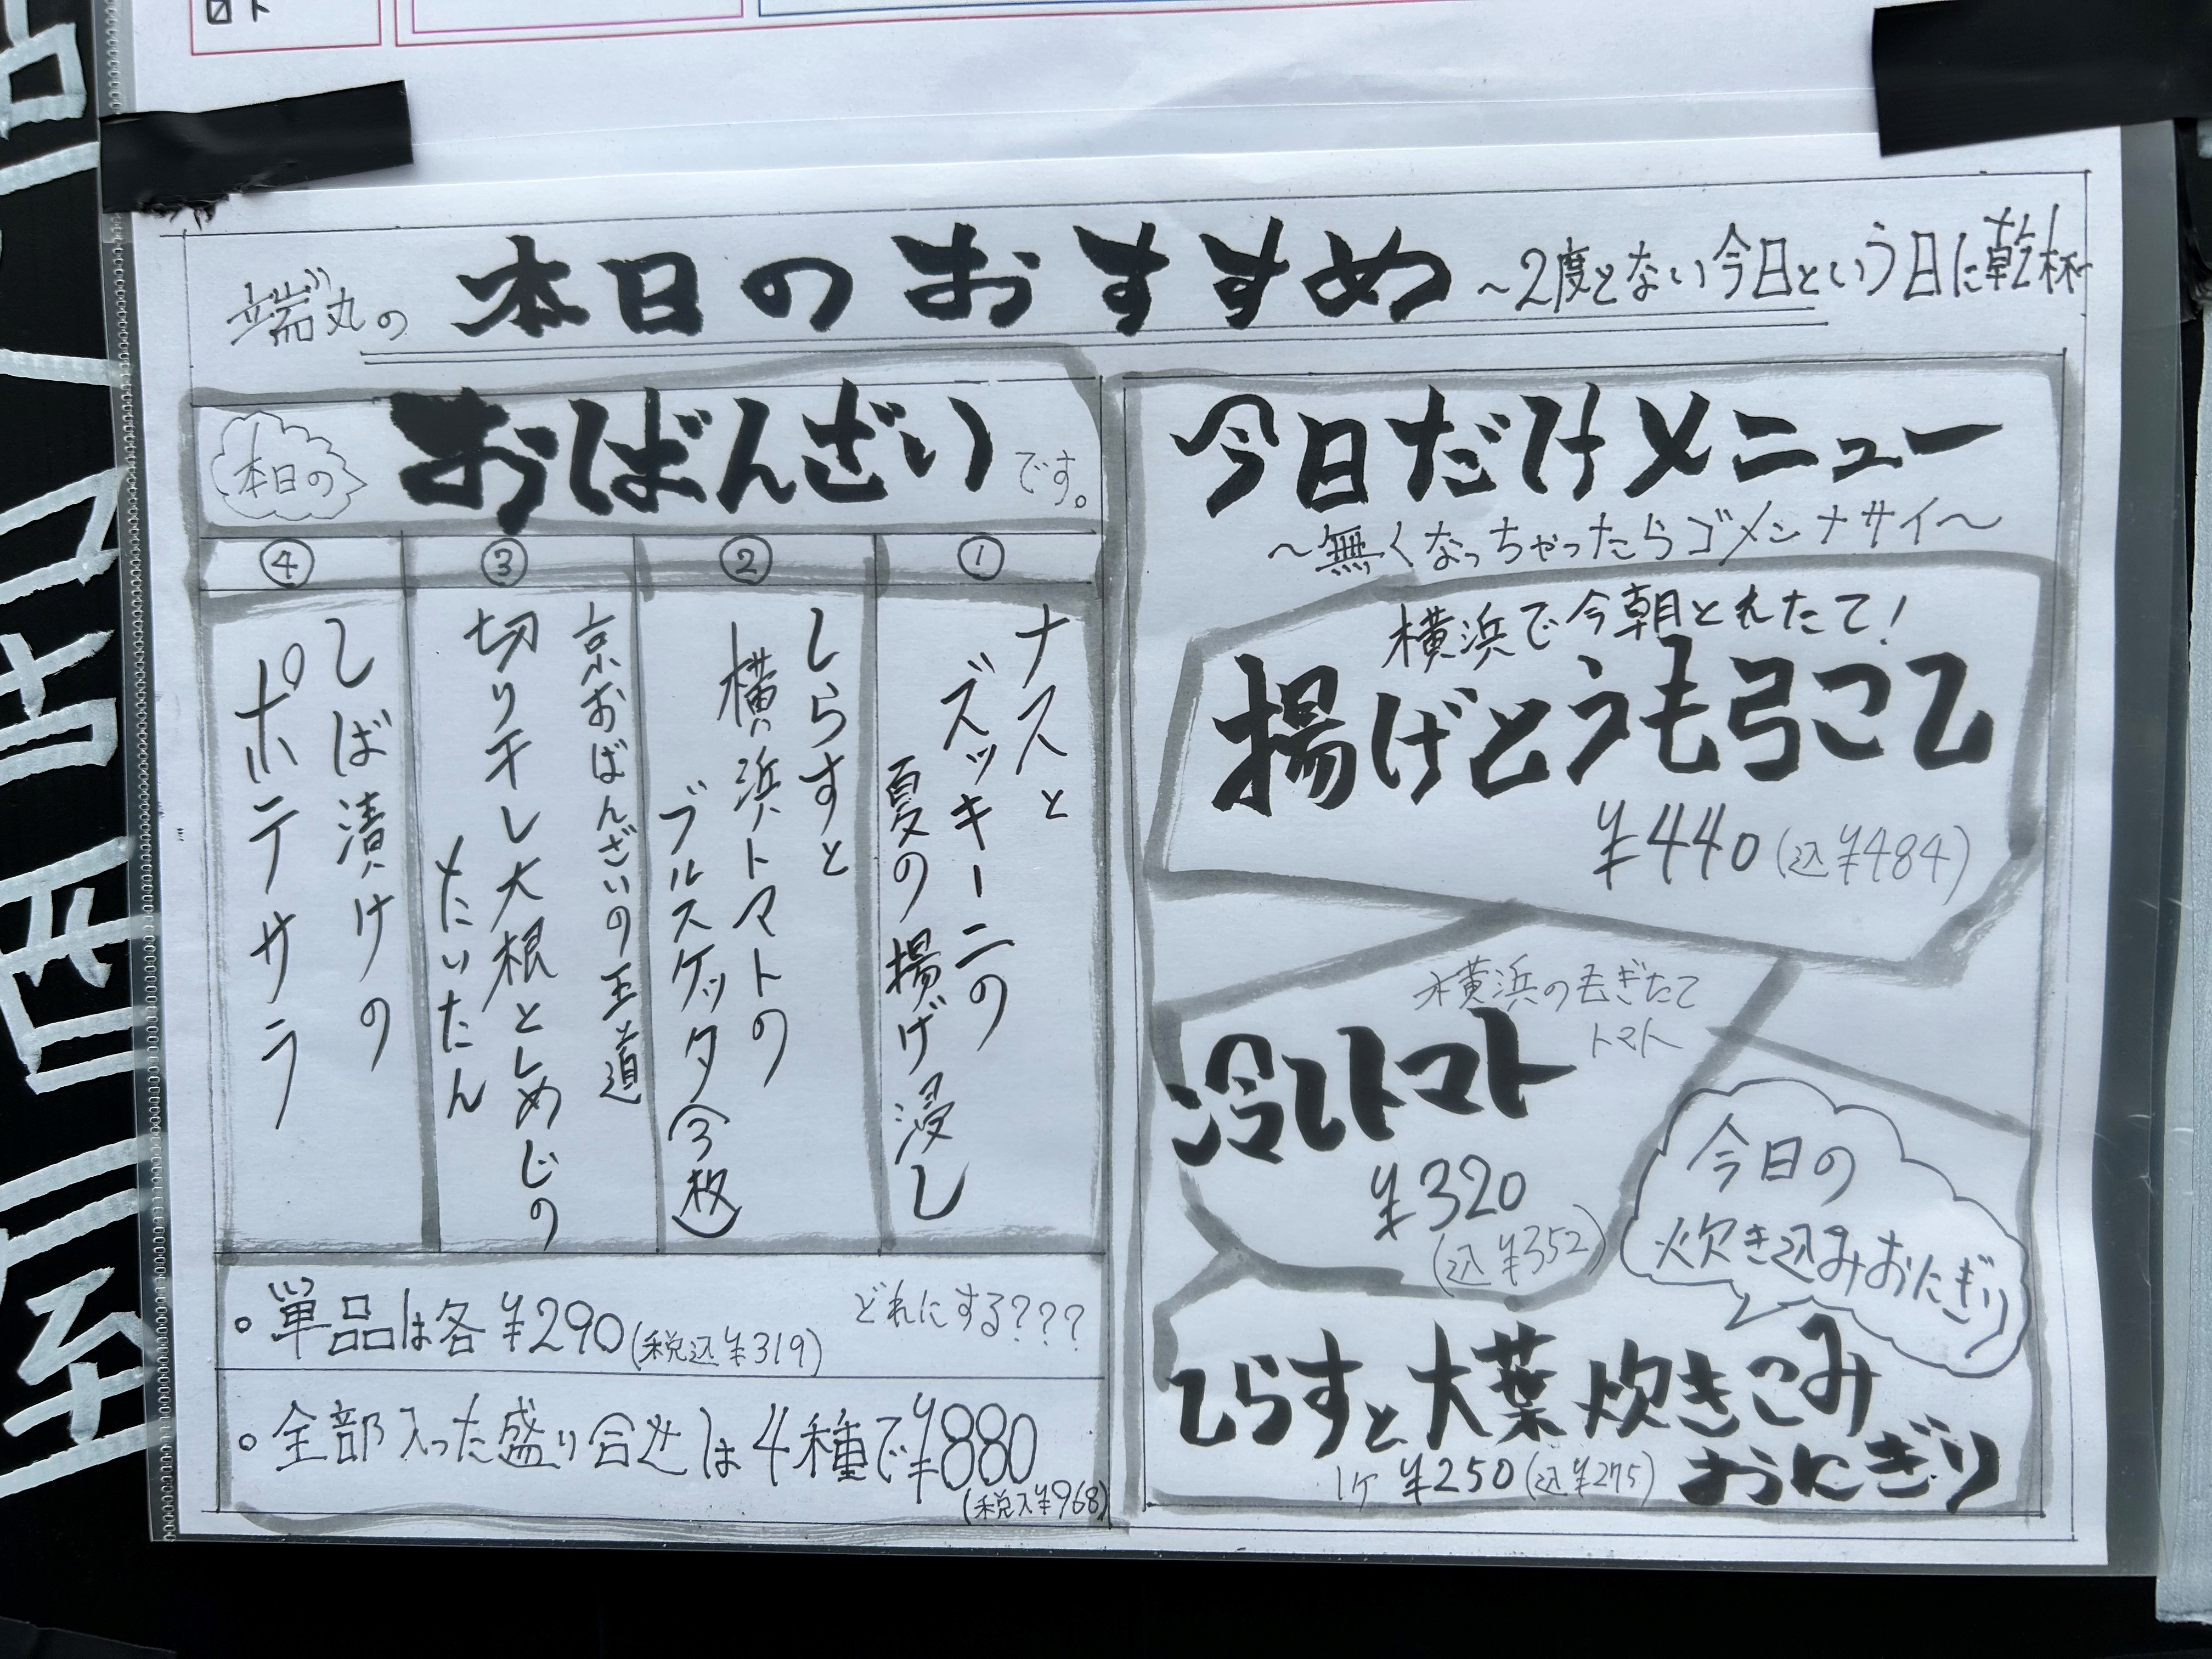 端丸の 本日のおすすめ ～2度とない今日という日に乾杯
本日の おばんざい です。
①
ナスと
ズッキーニの
夏の揚げ浸し
②
しらすと
横浜トマトの
ブルスケッタ(3枚)
③
京おばんざいの王道
切り干し大根としめじの
たいたん
④
しば漬けの
ポテサラ
どれにする???
。単品は各¥290(税込¥319)
。全部入った盛り合せは4種で¥880
(税込¥968)
今日だけメニュー
～無くなっちゃったらゴメンナサイ～
横浜で今朝とれたて!
揚げとうもろこし
¥440(込¥484)
横浜のもぎたて
トマト
冷しトマト
¥320
(込¥352)
今日の
炊き込みおにぎり
しらすと大葉炊きこみ
おにぎり
1ケ ¥250(込¥275)